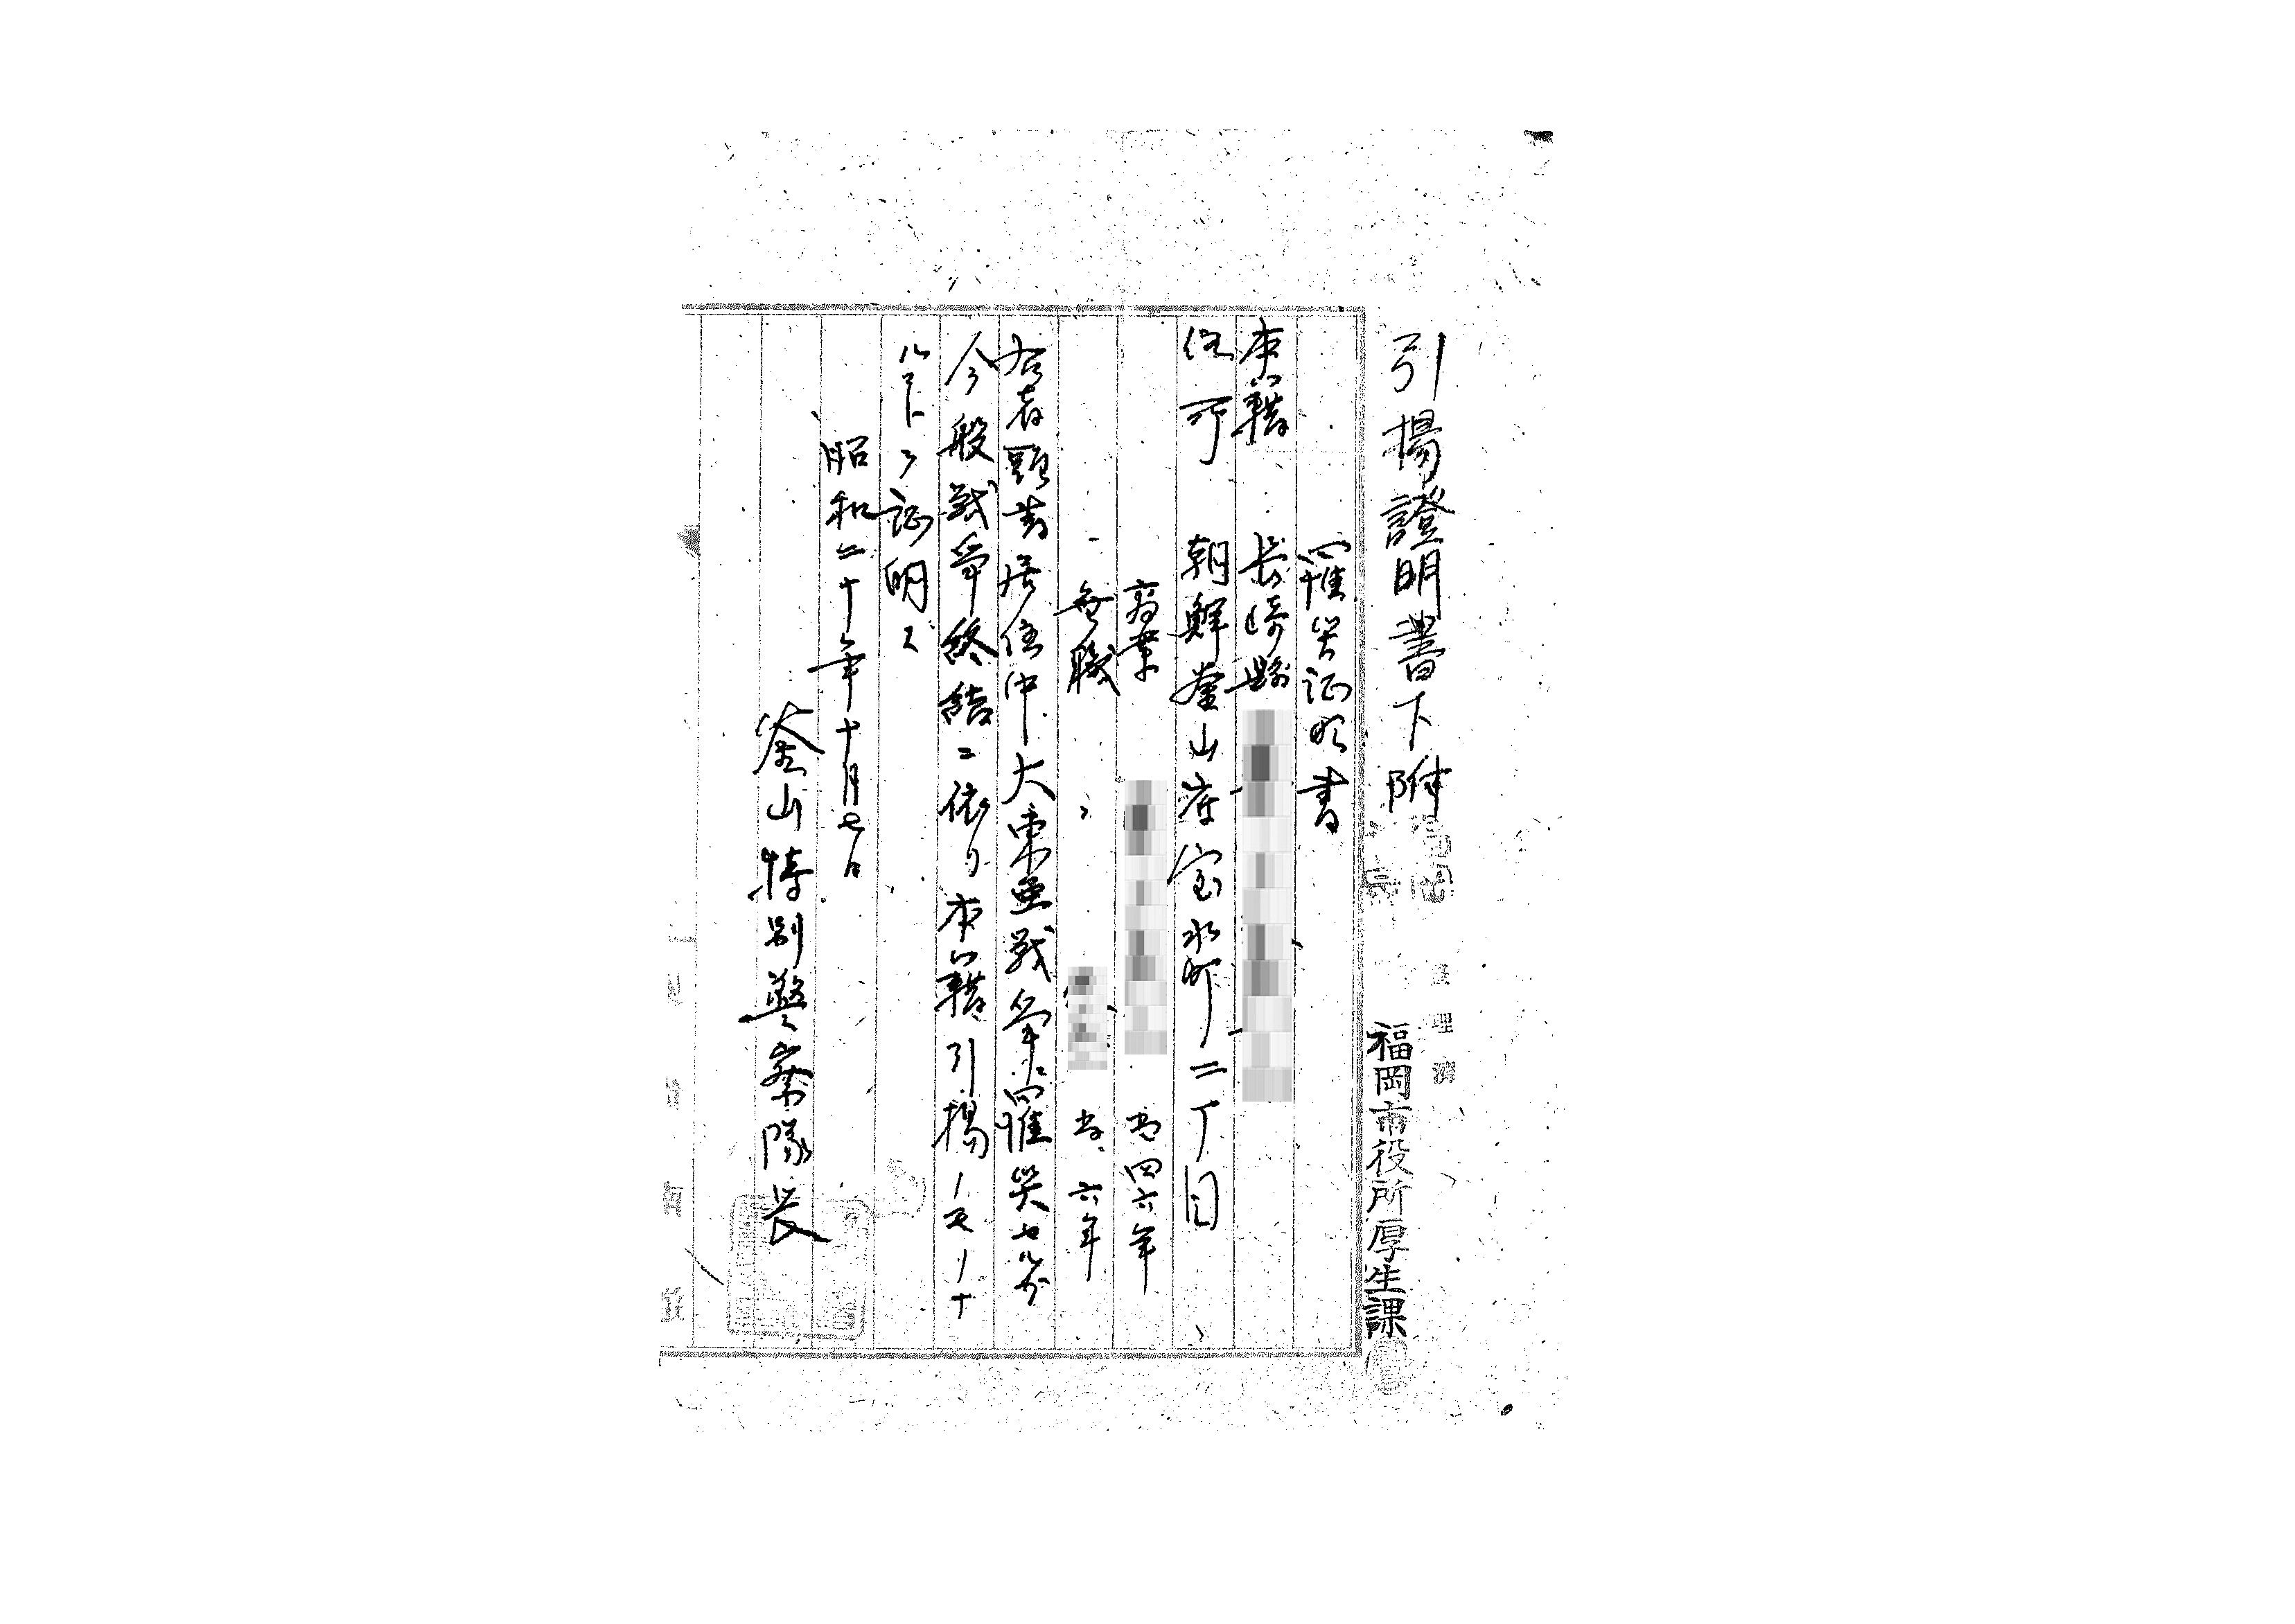 引揚證明書下附
處理濟
福岡市役所厚生課
罹災証明書
本籍 長崎縣
住所 朝鮮釜山府宝水町二丁目
商業 当四六年
無職 当六年
右者頭書居住中大東亜戦争ニ罹災セル為
今般戦争終結ニ依リ本籍引揚ノモノナ
ル事ヲ証明ス
昭和二十年十月七日
釜山特別警察隊長